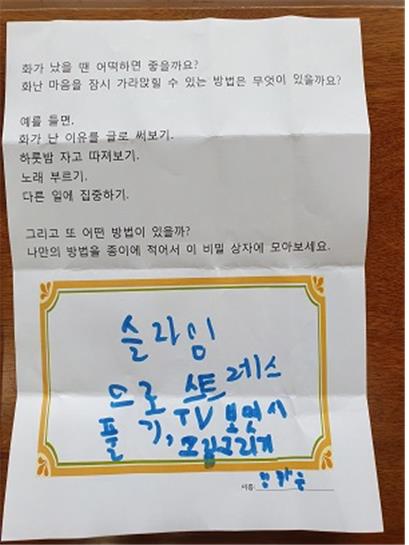 화가 났을 땐 어떡하면 좋을까요?
화난 마음을 잠시 가라앉힐 수 있는 방법은 무엇이 있을까요?
예를 들면,
화가 난 이유를 글로 써보기.
하룻밤 자고 따져보기.
노래 부르기.
다른 일에 집중하기.
그리고 또 어떤 방법이 있을까?
나만의 방법을 종이에 적어서 이 비밀 상자에 모아보세요.
슬라임
으로 스트레스
풀기, TV 보면서
그림그리기
이름: